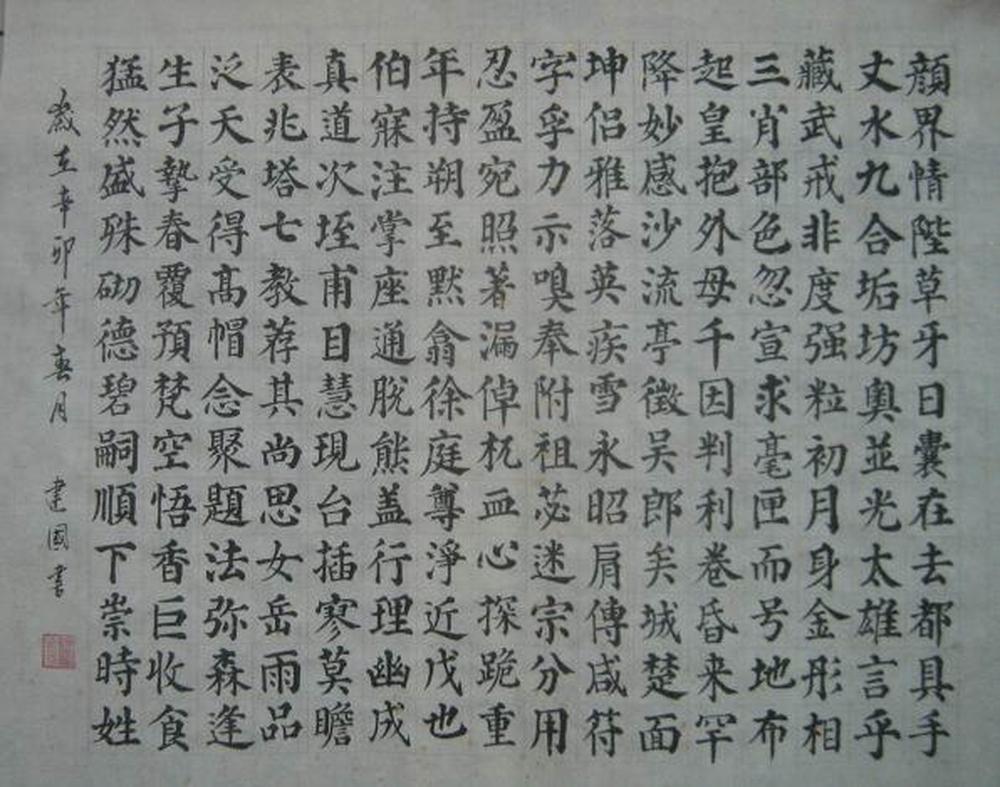 顔界情陛草牙日囊在去都具手
丈水九合垢坊奥並光太雄言乎
藏武戒非度强粒初月身金彤相
三肖部色忽宣求毫匣而号地布
起皇抱外母千因判利卷昏来罕
降妙感沙流亭徵吴郎矣城楚面
坤侣雅落英疾雪永昭肩傳咸符
字孚力示嗅奉附祖苾迷宗分用
忍盈宛照著漏倬杌皿心探跪重
年持朔至默翕徐庭尊淨近戊也
伯寐注掌座通脱熊盖行理幽成
真道次垤甫日慧現台插寥莫瞻
表兆塔七教荐其尚思女岳雨品
泛天受得髙帽念聚題法弥森逢
生子摯春覆預梵空悟香巨收食
猛然盛殊砌德碧嗣順下崇時姓
歲在辛卯年春月 建國書